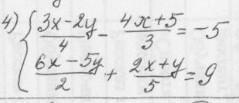 4) { (3x-2y)/4 - (4x+5)/3 = -5
(6x-5y)/2 + (2x+y)/5 = 9